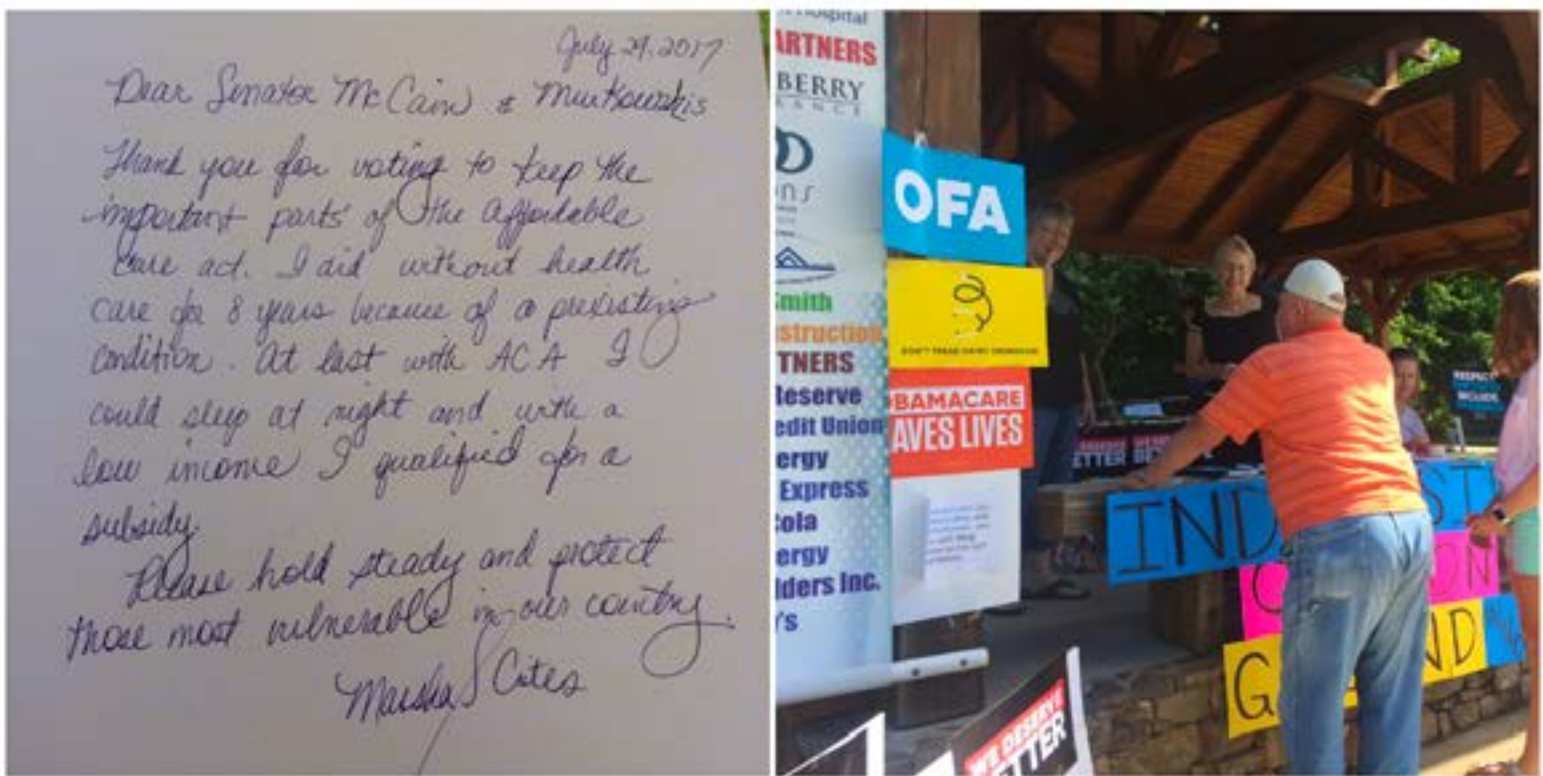 July 29, 2017
Dear Senator McCain & Murkowskis
Thank you for voting to keep the
important parts of the Affordable
Care act. I did without health
care for 8 years because of a prexisting
condition. At last with ACA I
could sleep at night and with a
low income I qualified for a
subsidy.
Please hold steady and protect
those most vulnerable in our country.
Marsha Cites
Hospital
ARTNERS
BERRY
RANCE
ons
mith
struction
TNERS
Reserve
edit Union
ergy
Express
cola
ergy
lders Inc.
's
OFA
BAMACARE
AVES LIVES
RESPECT
INCLUDE
ETTER
IND ST
ON
G ND
WE DESERVE
ETTER